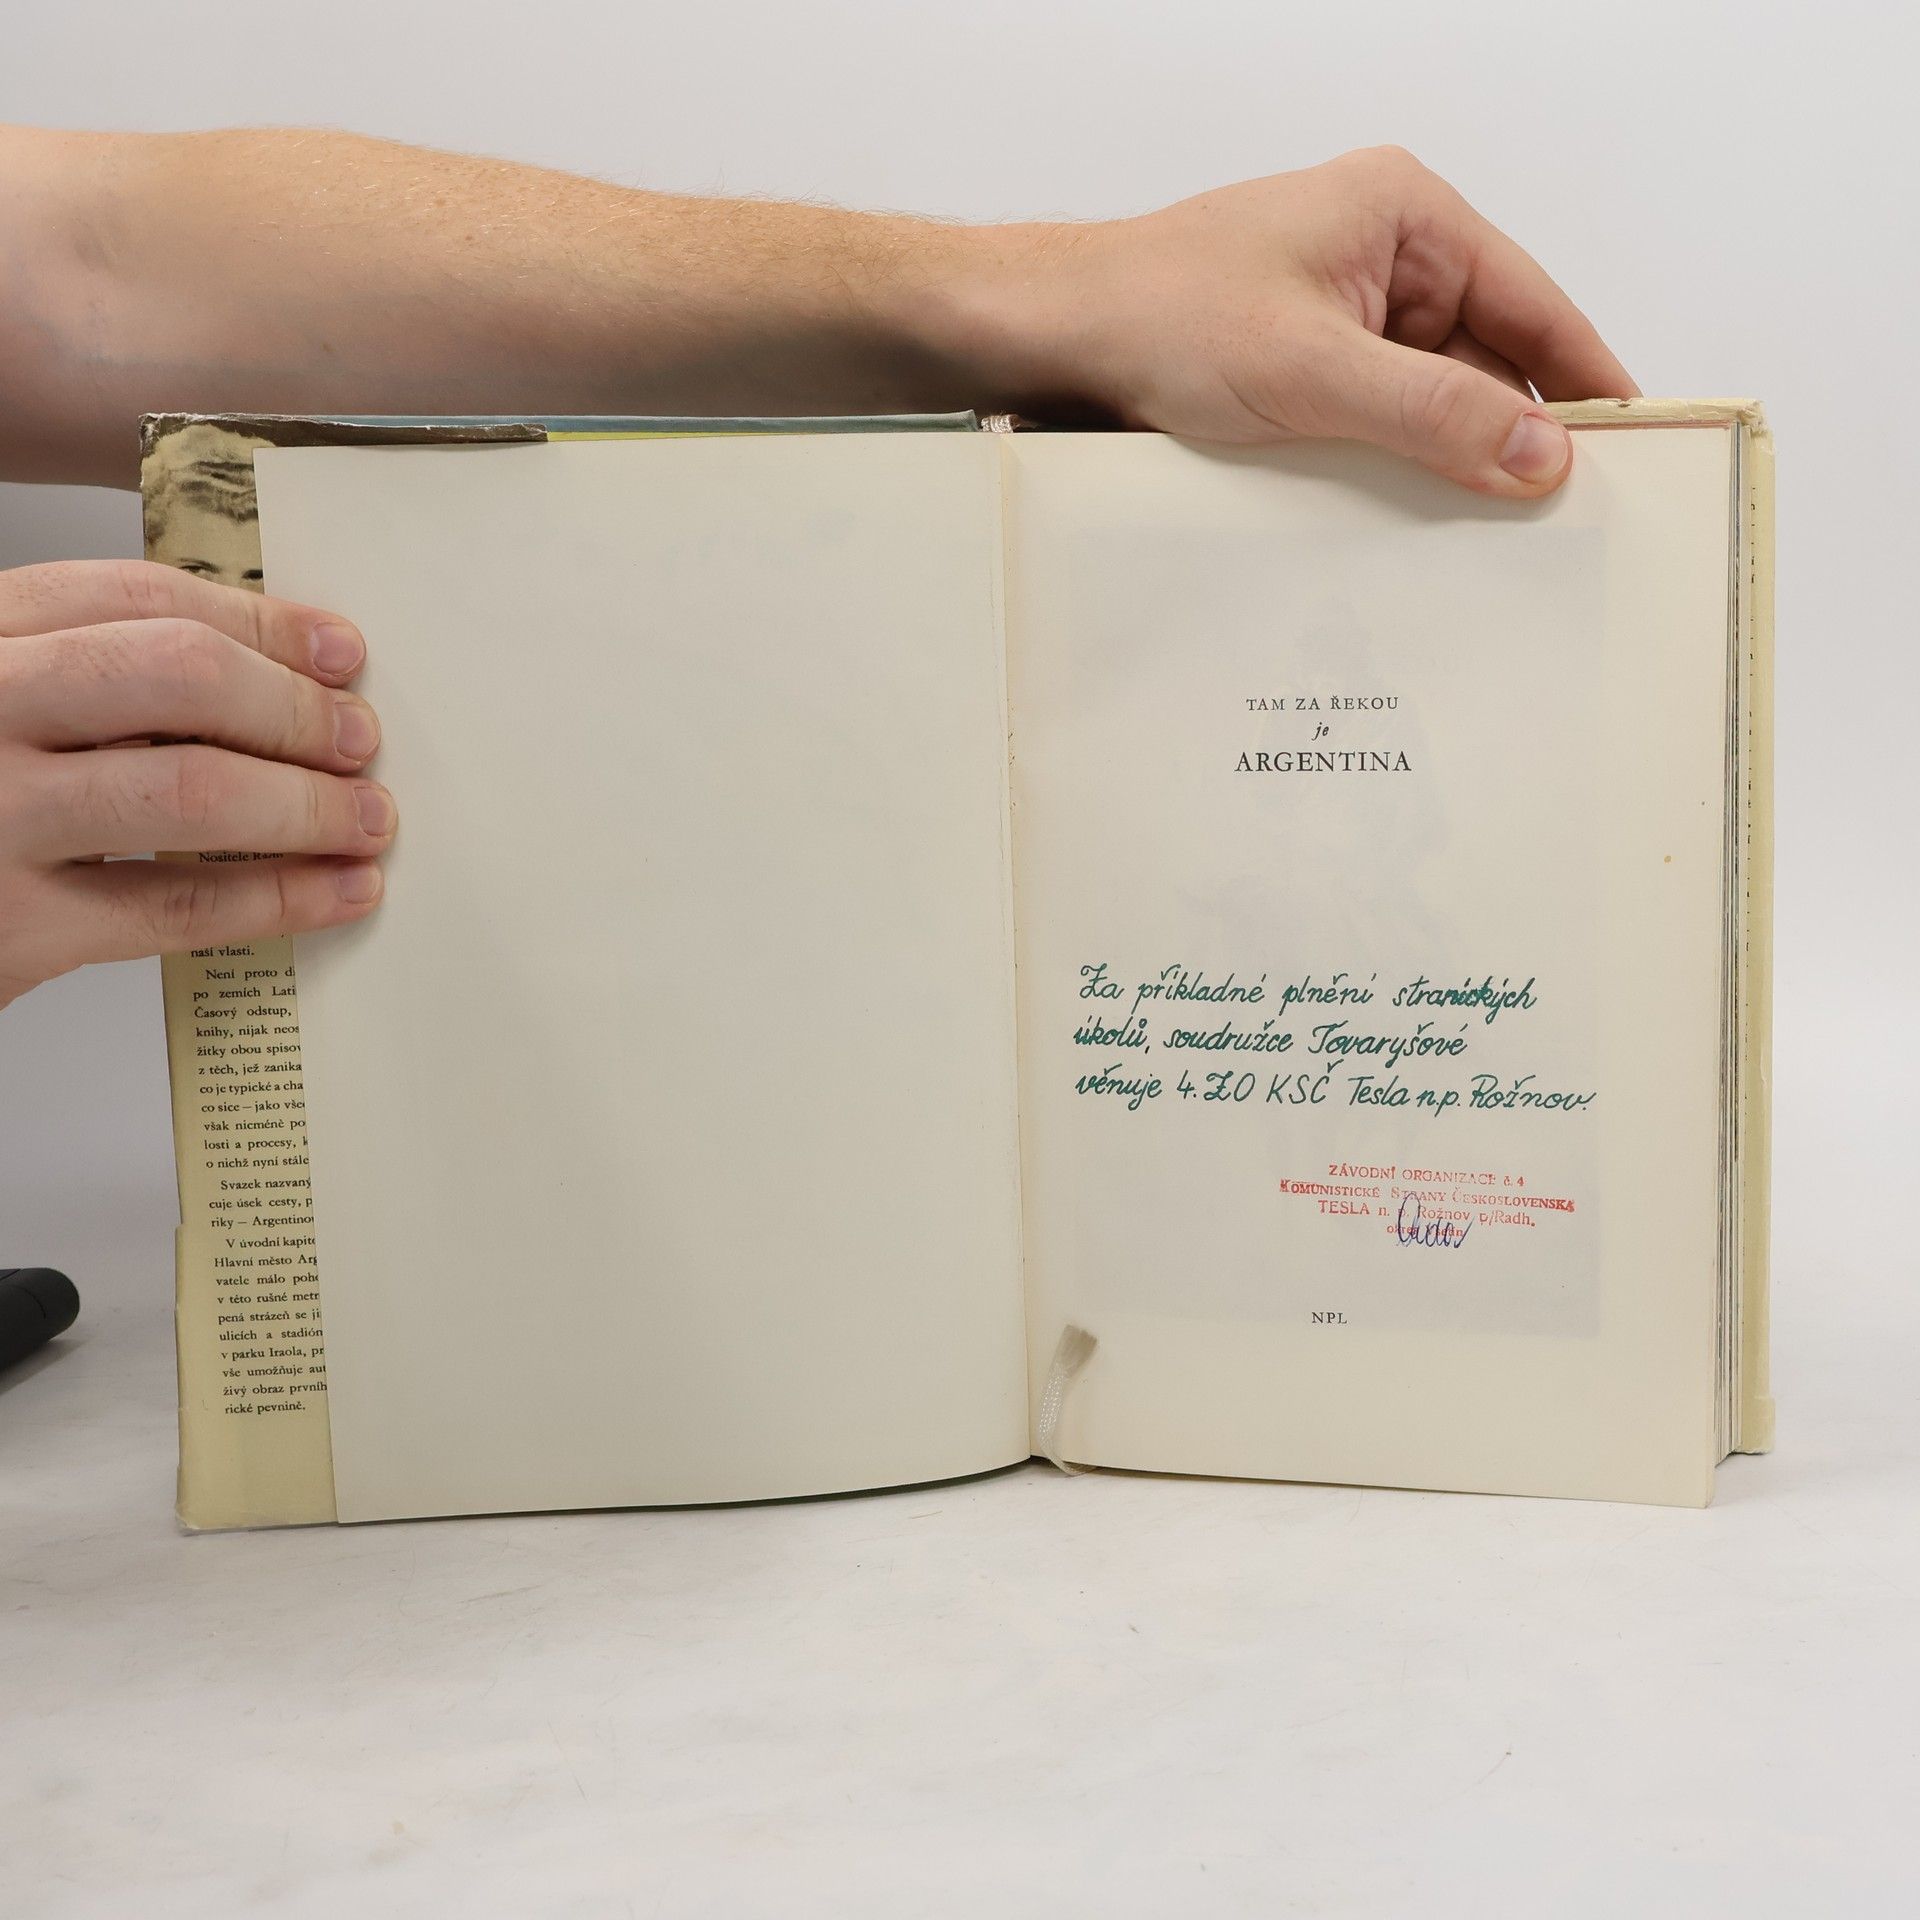 Nositele
naší vlasti.
Není proto d
po zemích Lati
Časový odstup,
knihy, nijak neos
žitky obou spisov
z těch, jež zanika
co je typické a cha
co sice – jako vše
však nicméně po
losti a procesy, k
o nichž nyní stále
Svazek nazvaný
cuje úsek cesty, p
riky – Argentinou
V úvodní kapito
Hlavní město Arg
vatele málo poho
v této rušné metr
pená strázeň se ji
ulicích a stadión
v parku Iraola, pr
vše umožňuje aut
živý obraz prvníh
rické pevnině.
TAM ZA ŘEKOU
je
ARGENTINA
Za příkladné plnění stranických
úkolů, soudružce Tovaryšové
věnuje 4. ZO KSČ Tesla n.p. Rožnov.
ZÁVODNÍ ORGANIZACE č. 4
KOMUNISTICKÉ STRANY ČESKOSLOVENSKA
TESLA n. p. Rožnov p/Radh.
okres Vsetín
NPL